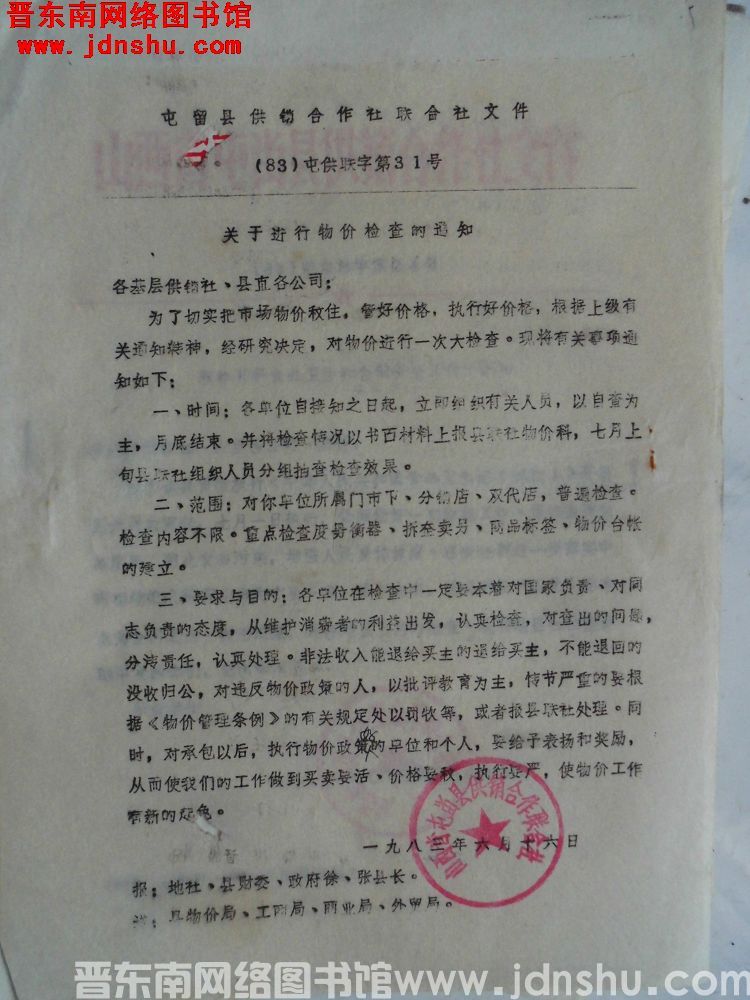 晋东南网络图书馆
www.jdnshu.com
屯留县供销合作社联合社文件
(83)屯供联字第31号
关于进行物价检查的通知
各基层供销社、县直各公司:
为了切实把市场物价稳住,管好价格,执行好价格,根据上级有
关通知精神,经研究决定,对物价进行一次大检查。现将有关事项通
知如下:
一、时间:各单位自接知之日起,立即组织有关人员,以自查为
主,月底结束。并将检查情况以书面材料上报县联社物价科,七月上
旬县联社组织人员分组抽查检查效果。
二、范围:对你单位所属门市下、分销店、双代店,普遍检查。
检查内容不限。重点检查度量衡器、拆整卖另、商品标签、物价台帐
的建立。
三、要求与目的:各单位在检查中一定要本着对国家负责、对同
志负责的态度,从维护消费者的利益出发,认真检查,对查出的问题,
分清责任,认真处理。非法收入能退给买主的退给买主,不能退回的
没收归公,对违反物价政策的人,以批评教育为主,情节严重的要根
据《物价管理条例》的有关规定处以罚款等,或者报县联社处理。同
时,对承包以后,执行物价政策的单位和个人,要给予表扬和奖励,
从而使我们的工作做到买卖要活、价格要稳,执行要严,使物价工作
有新的起色。
一九八三年六月十六日
山西省屯留县供销合作联合社
报:地社、县财委、政府徐、张县长。
送:县物价局、工商局、商业局、外贸局。
晋东南网络图书馆www.jdnshu.com